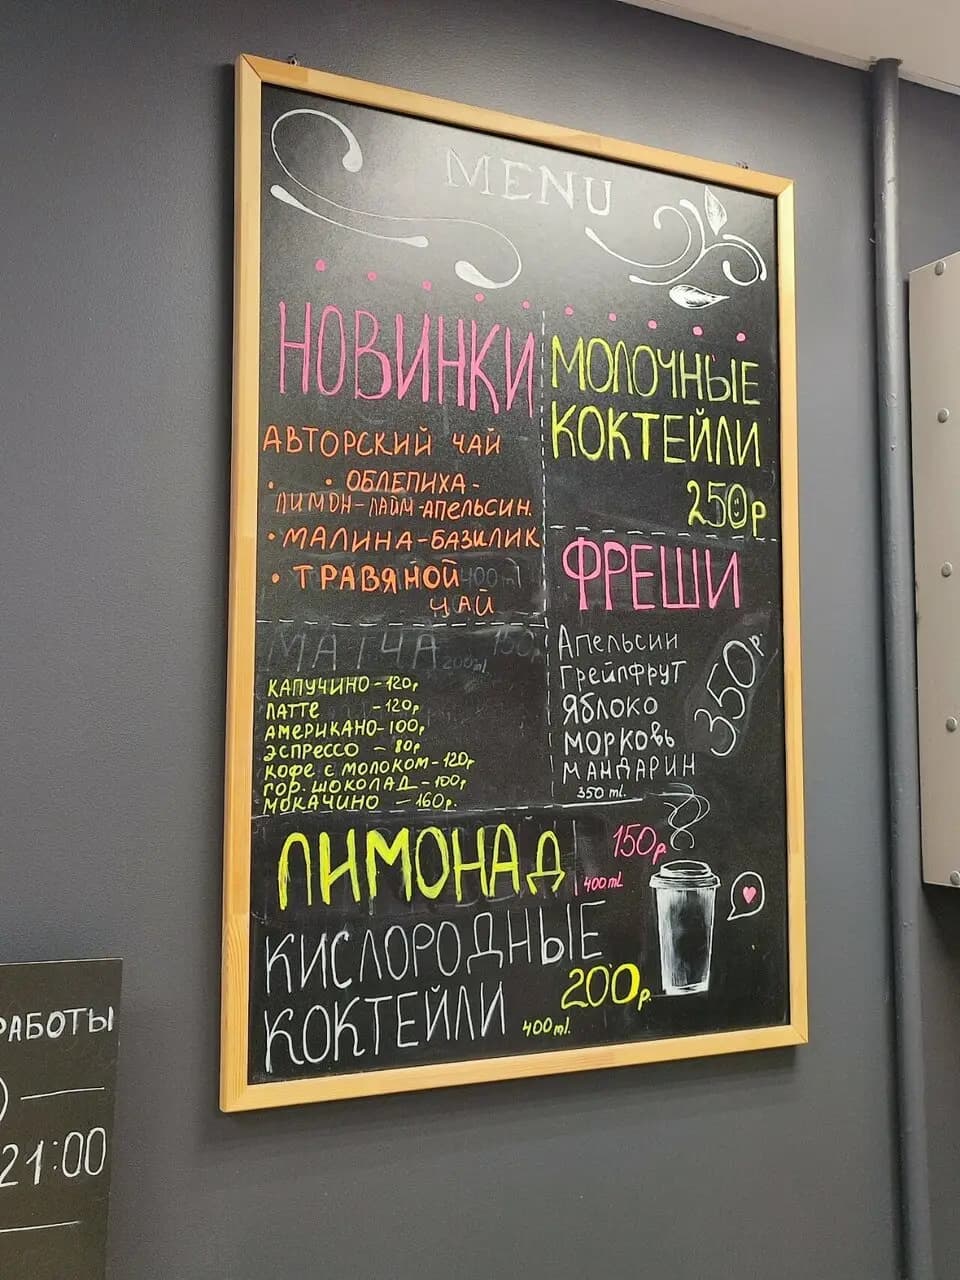 MENU
НОВИНКИ
АВТОРСКИЙ ЧАЙ
• ОБЛЕПИХА-
ЛИМОН-ЛАЙМ-АПЕЛЬСИН.
• МАЛИНА-БАЗИЛИК
• ТРАВЯНОЙ 400ml
ЧАЙ
МАТЧА 200ml 150р
КАПУЧИНО-120р
ЛАТТЕ -120р
АМЕРИКАНО-100р
ЭСПРЕССО - 80р
КОФЕ С МОЛОКОМ-120р
ГОР. ШОКОЛАД -100р
МОКАЧИНО -160р.
МОЛОЧНЫЕ
КОКТЕЙЛИ
250р
ФРЕШИ
Апельсин
Грейпфрут
Яблоко
морковь
мандарин
350 ml.
350р.
ЛИМОНАД
400ml
150р.
КИСЛОРОДНЫЕ
КОКТЕЙЛИ
400ml.
200р.
РАБОТЫ
21:00